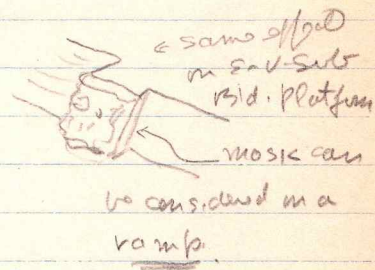 ← same effect
on
Bld. Platform
mosk can
be considered on a
ramp.